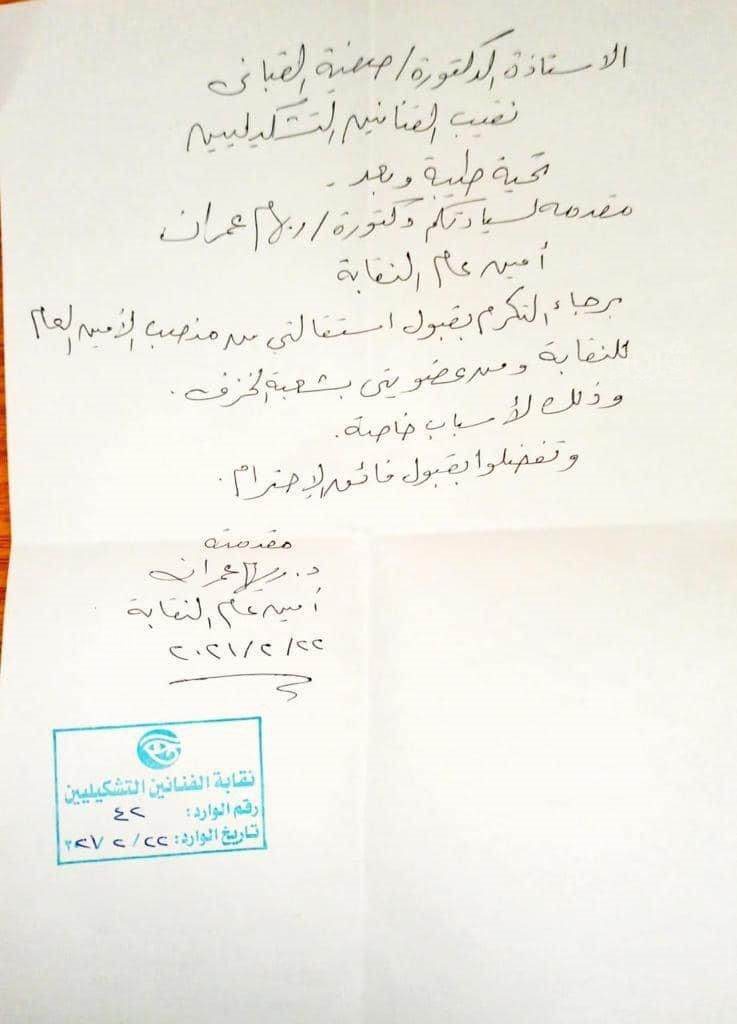 الاستاذة الدكتورة / صفية القبانى
نقيب الفنانين التشكيليين
تحية طيبة وبعد -
مقدمه لسيادتكم دكتورة / ريهام عمران
أمين عام النقابة
برجاء التكرم بقبول استقالتي من منصب الأمين العام
للنقابة ومن عضويتى بشعبة الخزف .
وذلك لأسباب خاصة .
وتفضلوا بقبول فائق الإحترام .
مقدمته
د. ريهام عمران
أمين عام النقابة
٢٠٢١/٢/٢٢
نقابة الفنانين التشكيليين
رقم الوارد: ٤٢
تاريخ الوارد: ٢٢/ ٢